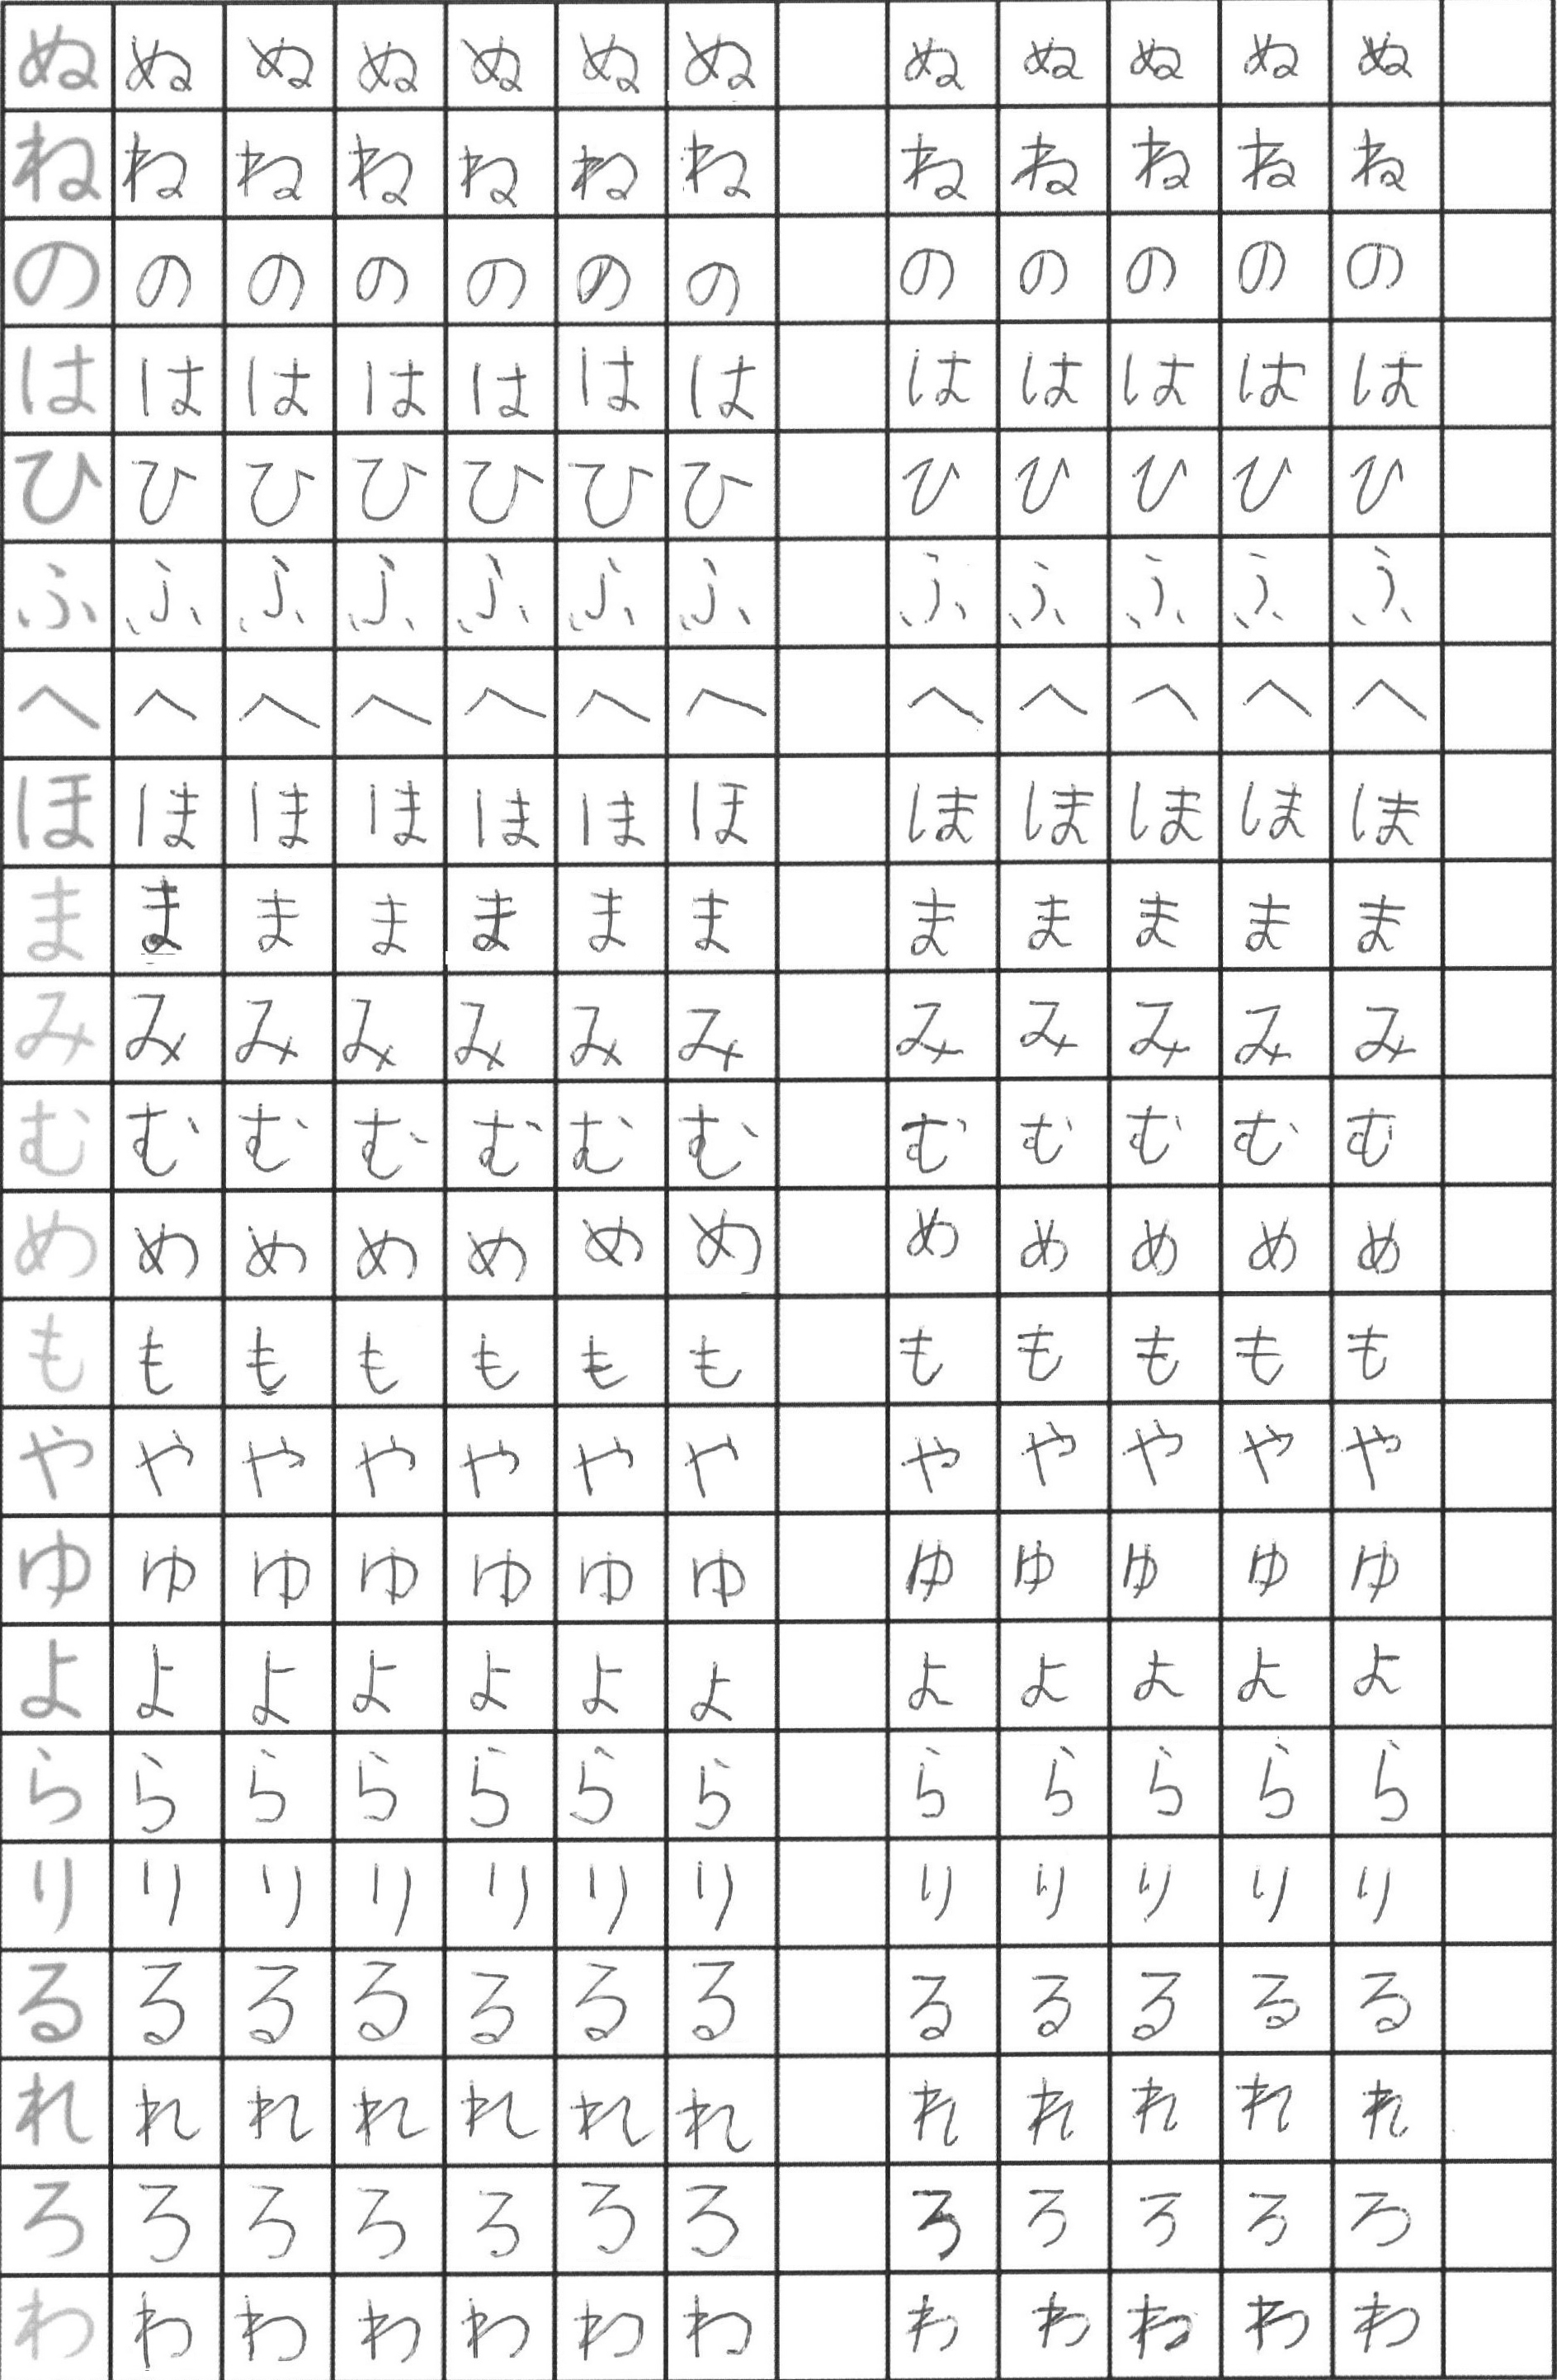 ぬ ぬ ぬ ぬ ぬ ぬ ぬ ぬ ぬ ぬ ぬ ぬ
ね ね ね ね ね ね ね ね ね ね ね ね
の の の の の の の の の の の の
は は は は は は は は は は は は
ひ ひ ひ ひ ひ ひ ひ ひ ひ ひ ひ ひ
ふ ふ ふ ふ ふ ふ ふ ふ ふ ふ ふ ふ
へ へ へ へ へ へ へ へ へ へ へ へ
ほ ほ ほ ほ ほ ほ ほ ほ ほ ほ ほ ほ
ま ま ま ま ま ま ま ま ま ま ま ま
み み み み み み み み み み み み
む む む む む む む む む む む む
め め め め め め め め め め め め
も も も も も も も も も も も も
や や や や や や や や や や や や
ゆ ゆ ゆ ゆ ゆ ゆ ゆ ゆ ゆ ゆ ゆ ゆ
よ よ よ よ よ よ よ よ よ よ よ よ
ら ら ら ら ら ら ら ら ら ら ら ら
り り り り り り り り り り り り
る る る る る る る る る る る る
れ れ れ れ れ れ れ れ れ れ れ れ
ろ ろ ろ ろ ろ ろ ろ ろ ろ ろ ろ ろ
わ わ わ わ わ わ わ わ わ ね わ わ